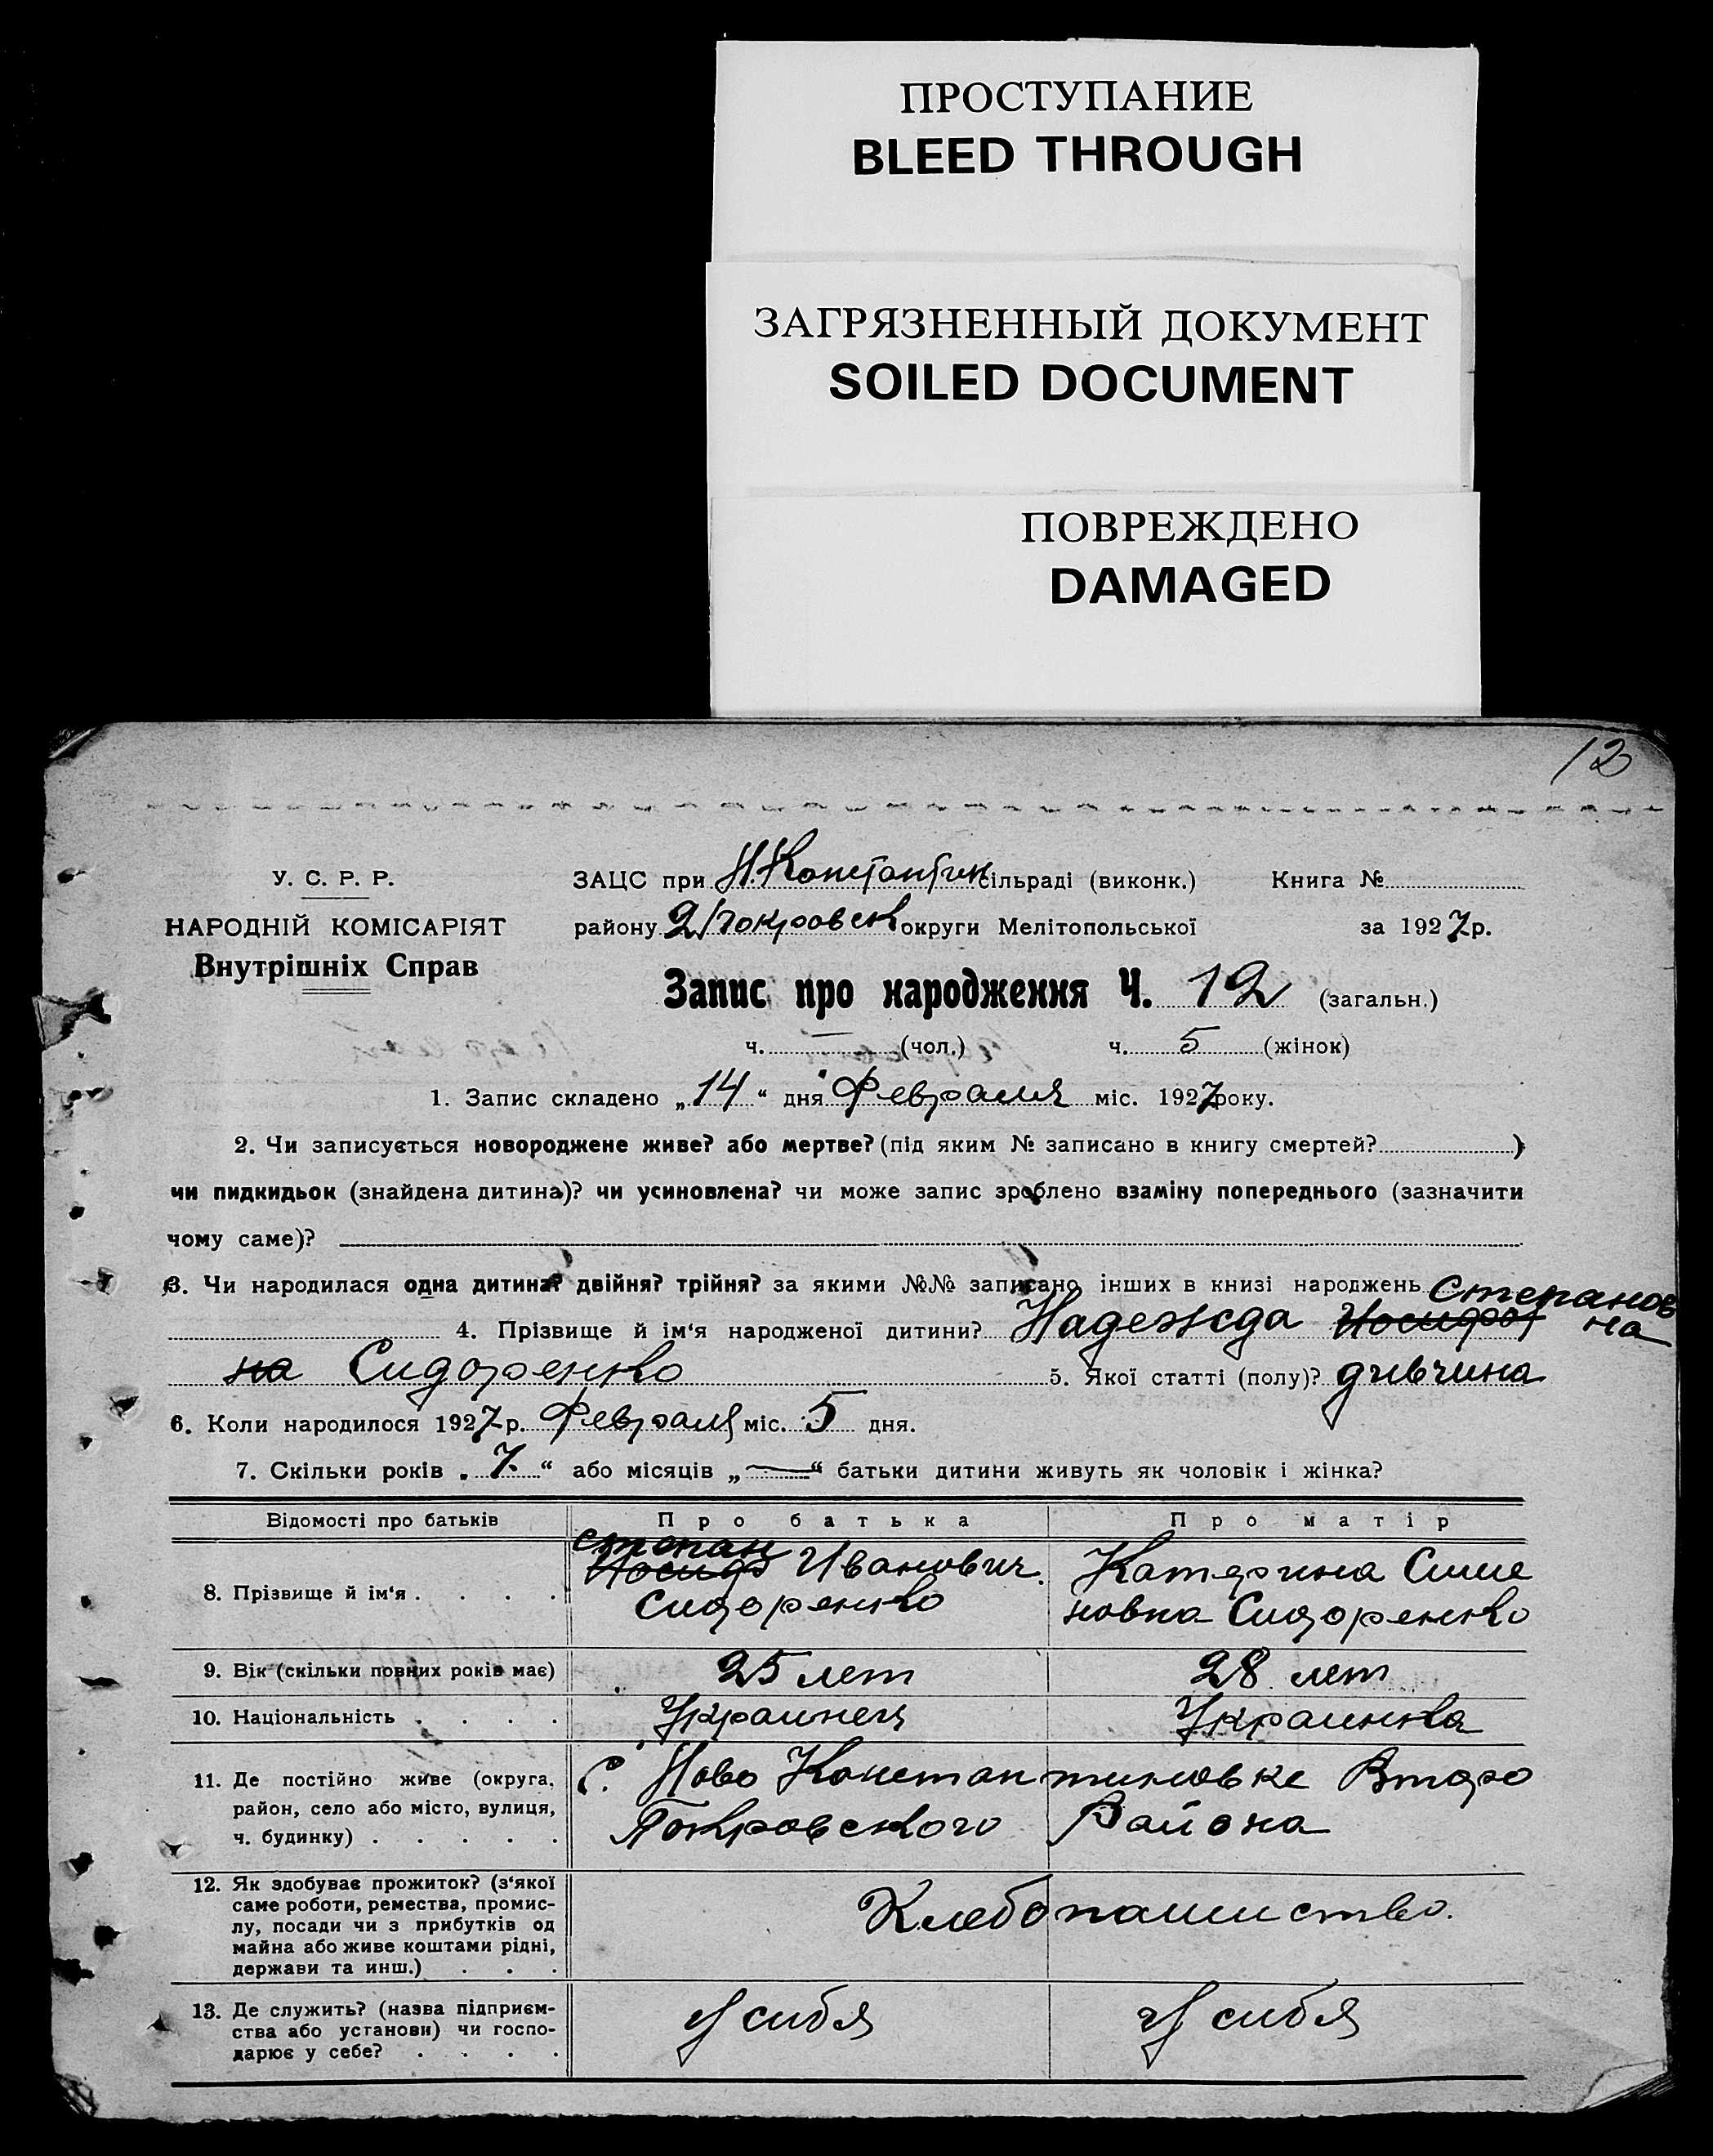 ПРОСТУПАНИЕ
BLEED THROUGH
ЗАГРЯЗНЕННЫЙ ДОКУМЕНТ
SOILED DOCUMENT
ПОВРЕЖДЕНО
DAMAGED
12
У. С. Р. Р.
НАРОДНІЙ КОМІСАРІЯТ
Внутрішніх Справ
ЗАЦС при Н.Константин сільраді (виконк.) Книга №
району 2/Покровск округи Мелітопольської за 1927 р.
Запис про народження Ч. 12 (загальн.)
ч. — (чол.) ч. 5 (жінок)
1. Запис складено „14“ дня Февраля міс. 1927 року.
2. Чи записується новороджене живе? або мертве? (під яким № записано в книгу смертей? )
чи пидкидьок (знайдена дитина)? чи усиновлена? чи може запис зроблено взаміну попереднього (зазначити
чому саме)?
3. Чи народилася одна дитина? двійня? трійня? за якими №№ записано інших в книзі народжень
Степанов
4. Прізвище й ім‘я народженої дитини? Надежда Иосифов на
на Сидоренко 5. Якої статті (полу)? дивчина
6. Коли народилося 1927 р. Февраля міс. 5 дня.
7. Скільки років „7“ або місяців „—“ батьки дитини живуть як чоловік і жінка?
Відомості про батьків Про батька Про матір
Степан
8. Прізвище й ім‘я . . . . Иосиф Иванович Катерина Симе
Сидоренко новна Сидоренко
9. Вік (скільки повних років має) 25 лет 28 лет
10. Національність . . . . Украинец Украинка
11. Де постійно живе (округа, с. Ново Константиновке Второ
район, село або місто, вулиця,
ч. будинку) . . . . . Покровского Района
12. Як здобуває прожиток? (з‘якої
саме роботи, ремества, промис-
лу, посади чи з прибутків од Клебопашиство.
майна або живе коштами рідні,
держави та инш.) . . .
13. Де служить? (назва підприєм- У сибя У сибя
ства або установи) чи госпо-
дарює у себе? . . . .